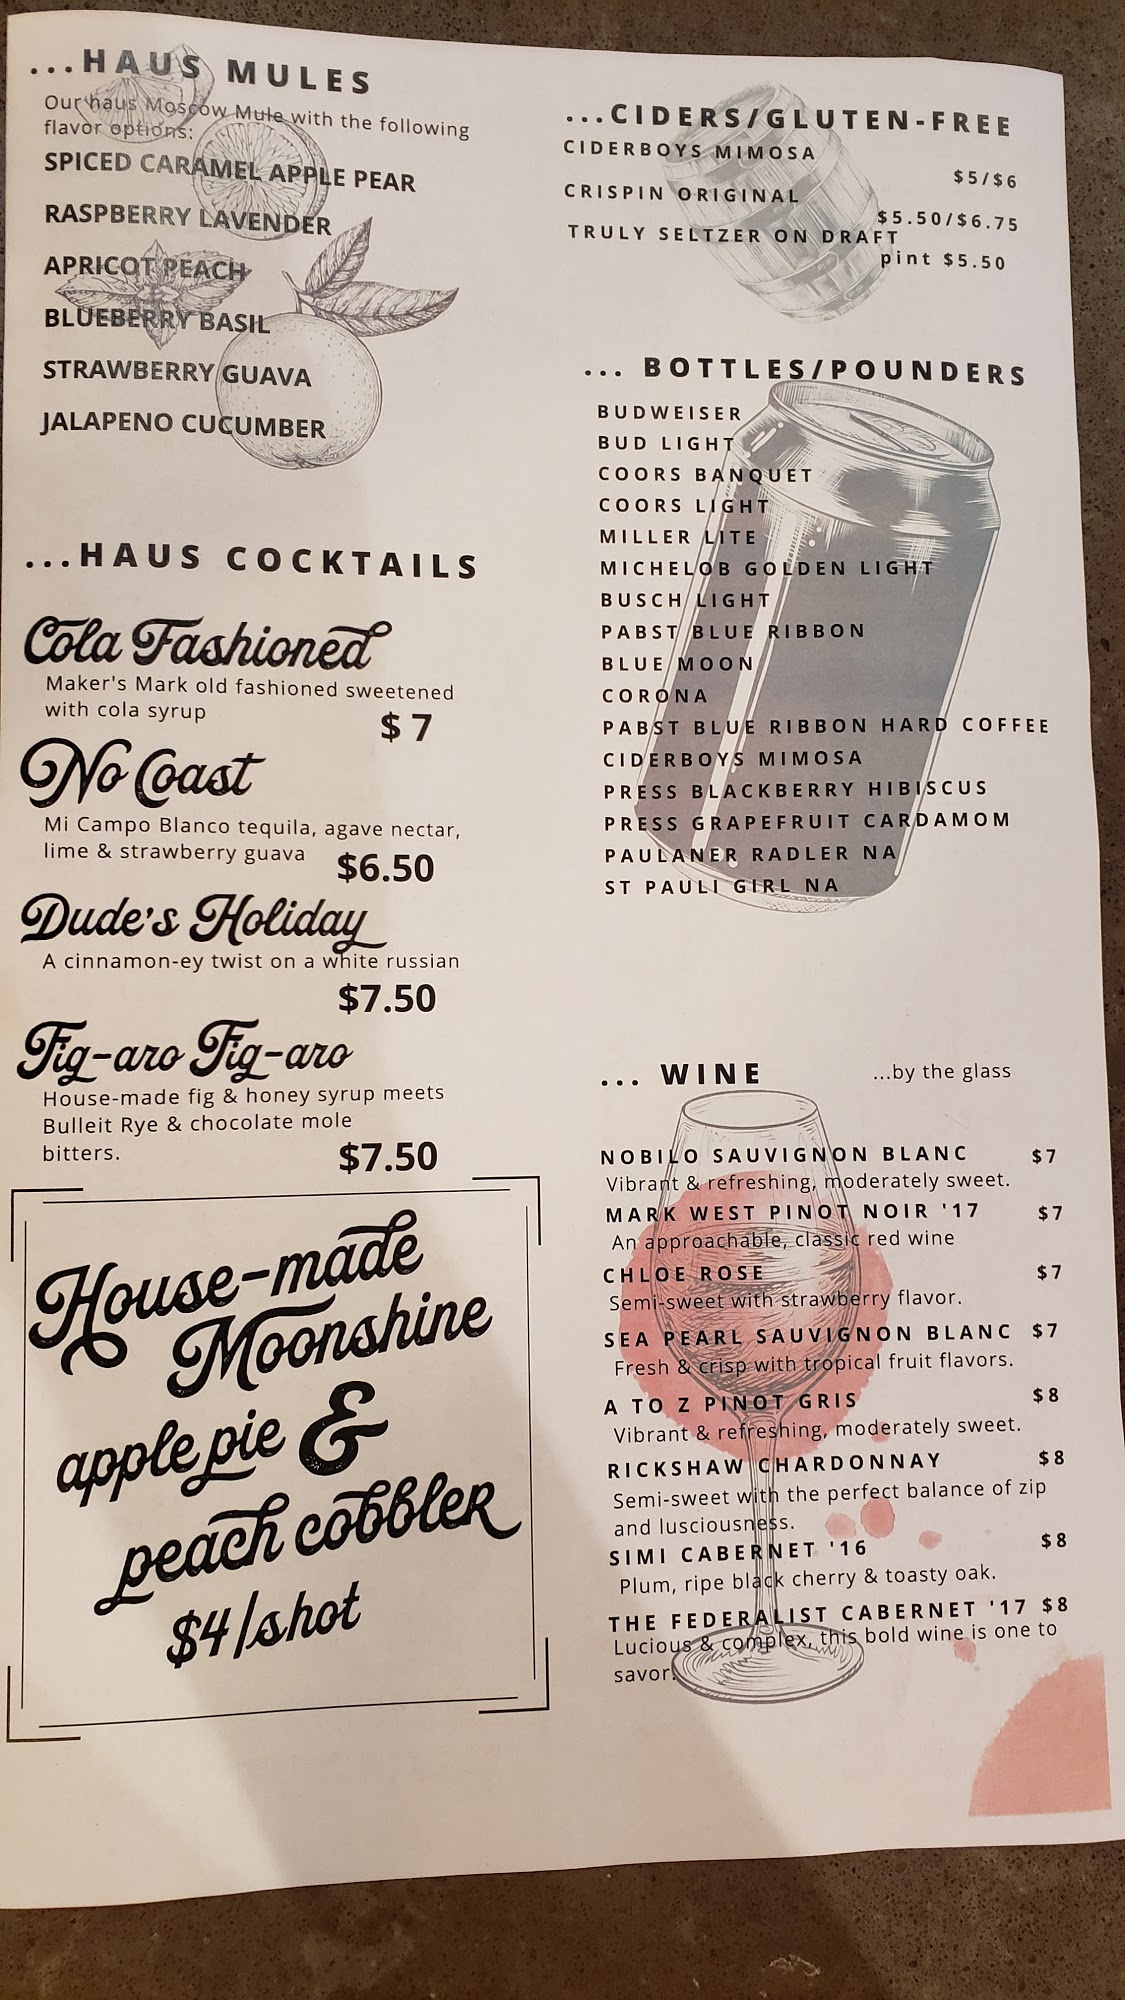 ...HAUS MULES
Our haus Moscow Mule with the following
flavor options:
SPICED CARAMEL APPLE PEAR
RASPBERRY LAVENDER
APRICOT PEACH
BLUEBERRY BASIL
STRAWBERRY GUAVA
JALAPENO CUCUMBER
...HAUS COCKTAILS
Cola Fashioned
Maker's Mark old fashioned sweetened
with cola syrup
$7
No Coast
Mi Campo Blanco tequila, agave nectar,
lime & strawberry guava
$6.50
Dude's Holiday
A cinnamon-ey twist on a white russian
$7.50
Fig-aro Fig-aro
House-made fig & honey syrup meets
Bulleit Rye & chocolate mole
bitters.
$7.50
House-made
Moonshine
apple pie &
peach cobbler
$4/shot
...CIDERS/GLUTEN-FREE
CIDERBOYS MIMOSA
$5/$6
CRISPIN ORIGINAL
$5.50/$6.75
TRULY SELTZER ON DRAFT
pint $5.50
... BOTTLES/POUNDERS
BUDWEISER
BUD LIGHT
COORS BANQUET
COORS LIGHT
MILLER LITE
MICHELOB GOLDEN LIGHT
BUSCH LIGHT
PABST BLUE RIBBON
BLUE MOON
CORONA
PABST BLUE RIBBON HARD COFFEE
CIDERBOYS MIMOSA
PRESS BLACKBERRY HIBISCUS
PRESS GRAPEFRUIT CARDAMOM
PAULANER RADLER NA
ST PAULI GIRL NA
... WINE ...by the glass
NOBILO SAUVIGNON BLANC $7
Vibrant & refreshing, moderately sweet.
MARK WEST PINOT NOIR '17 $7
An approachable, classic red wine
CHLOE ROSE $7
Semi-sweet with strawberry flavor.
SEA PEARL SAUVIGNON BLANC $7
Fresh & crisp with tropical fruit flavors.
A TO Z PINOT GRIS $8
Vibrant & refreshing, moderately sweet.
RICKSHAW CHARDONNAY $8
Semi-sweet with the perfect balance of zip
and lusciousness.
SIMI CABERNET '16 $8
Plum, ripe black cherry & toasty oak.
THE FEDERALIST CABERNET '17 $8
Lucious & complex, this bold wine is one to
savor.